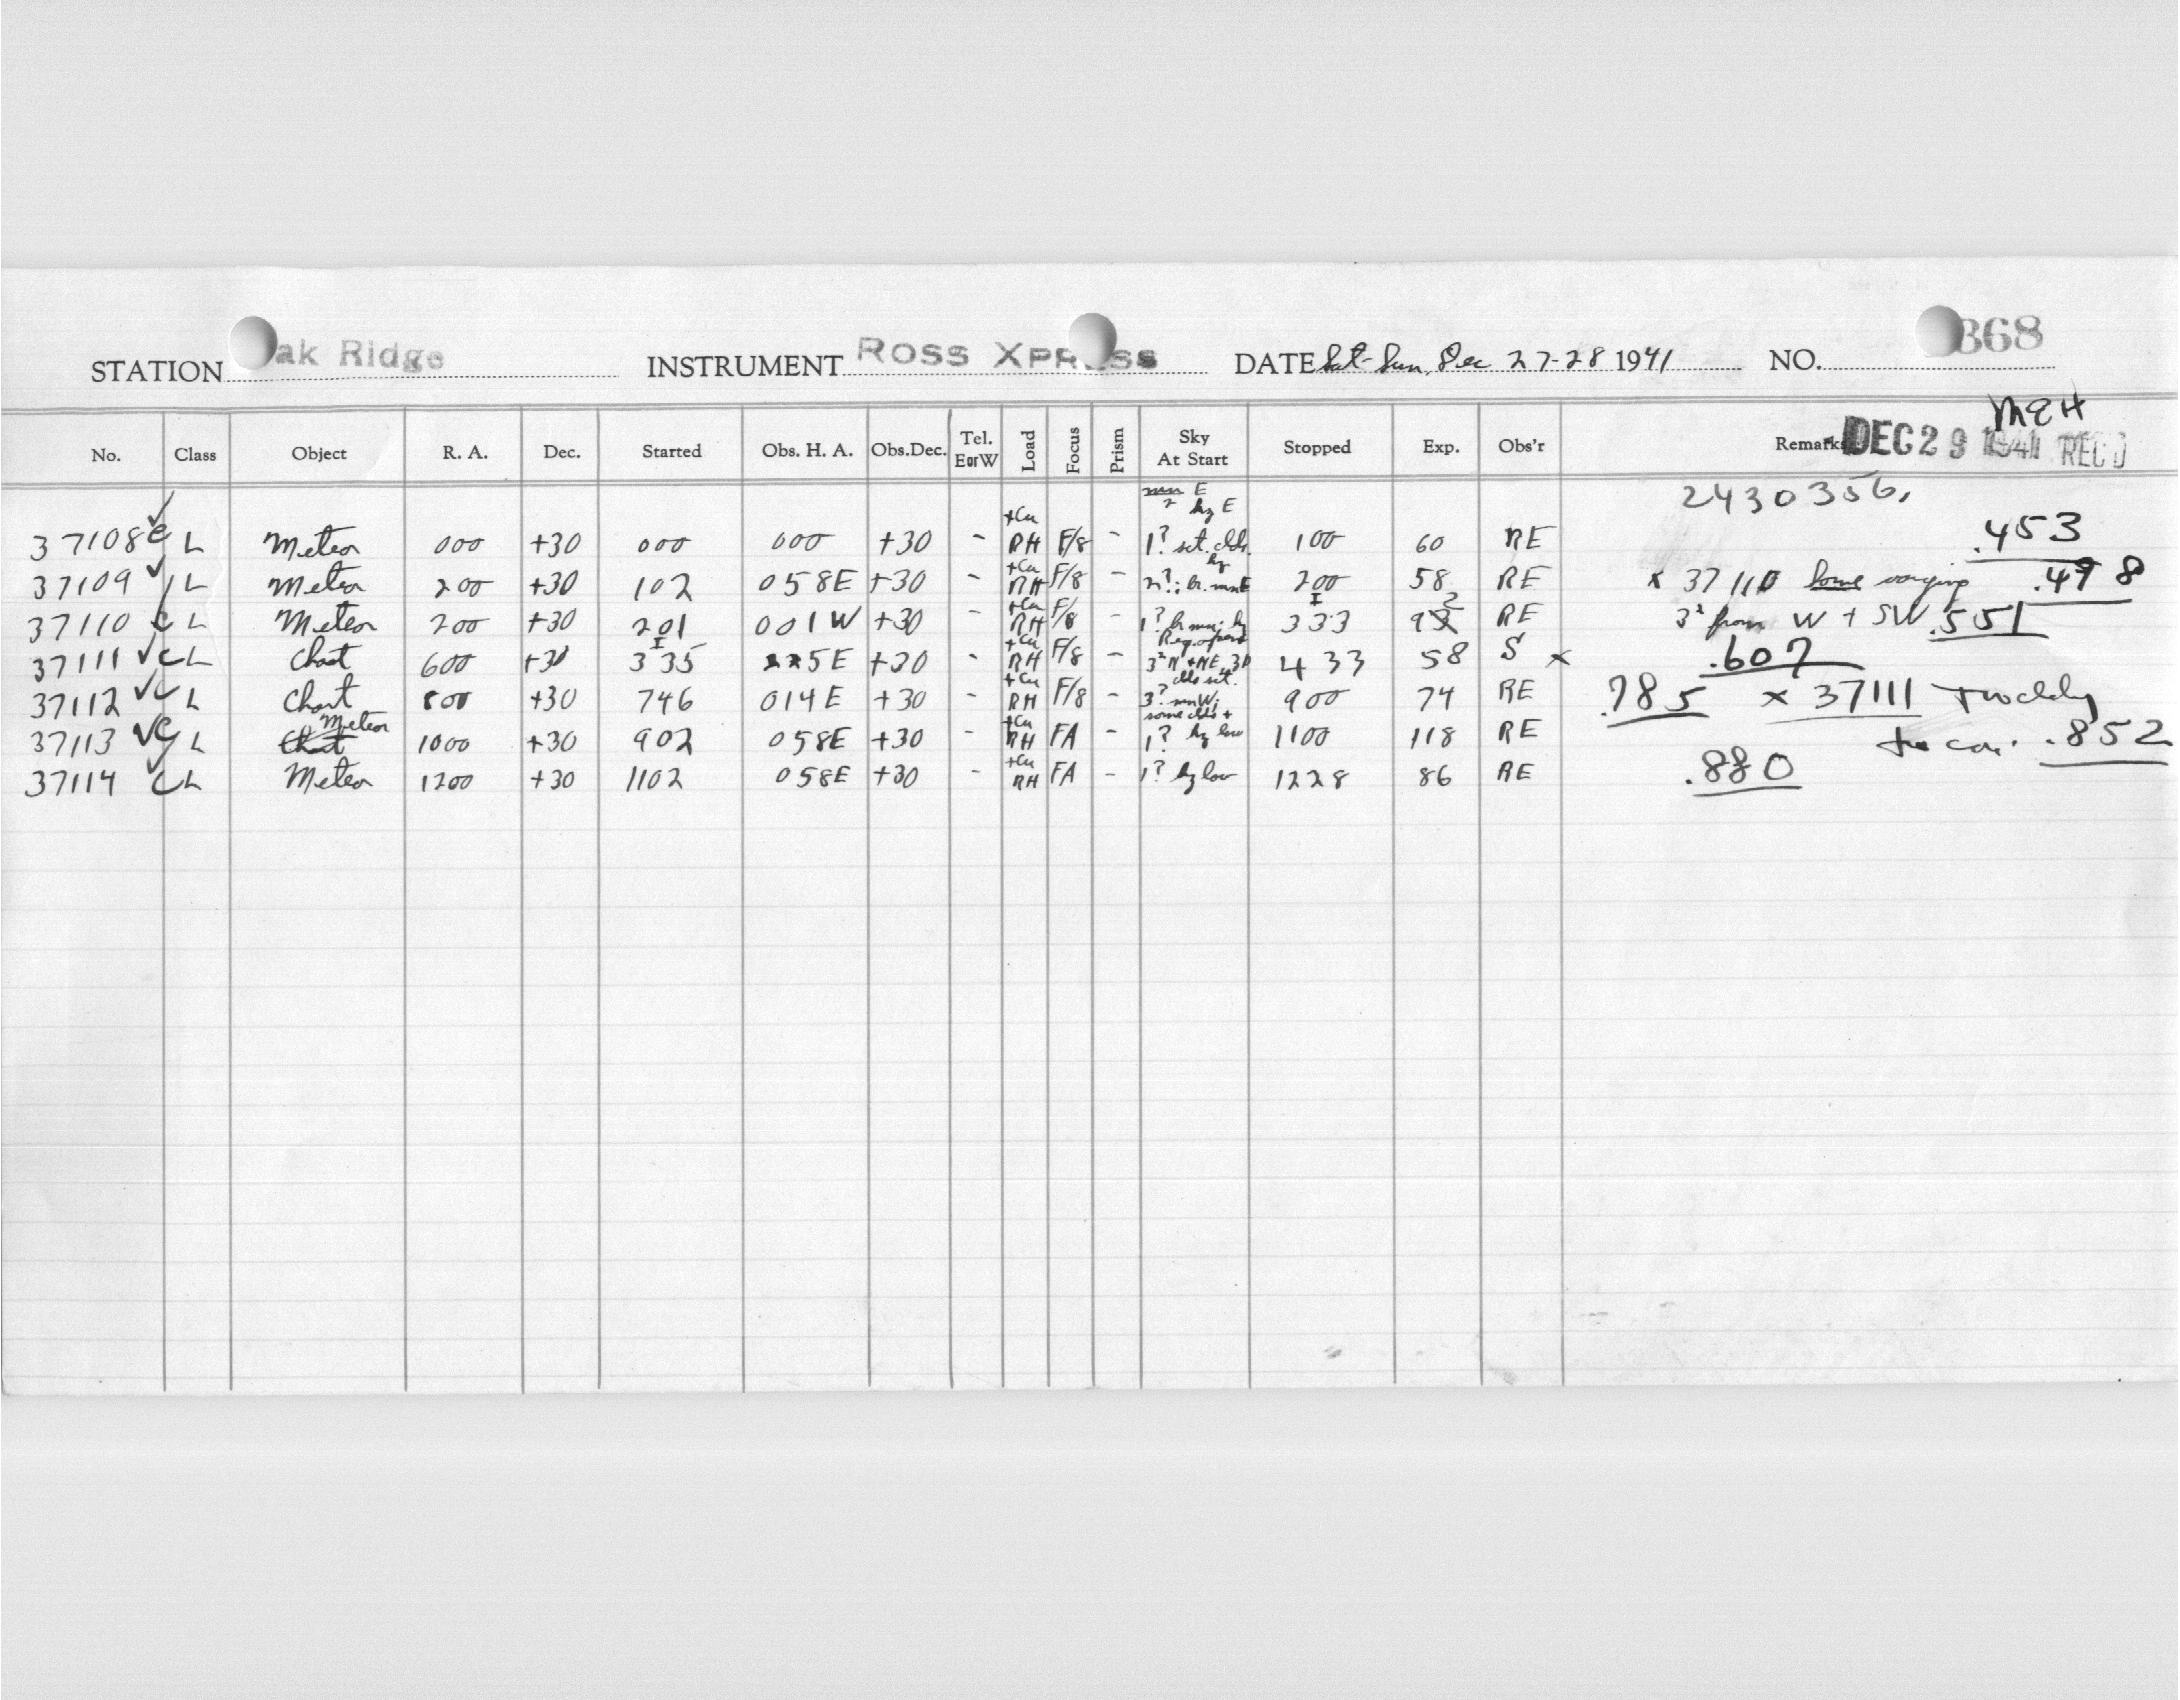 STATION ak Ridge INSTRUMENT ROSS XPR SS DATE Sat-Sun, Dec 27-28 1941 NO. 368
MEH
No. Class Object R. A. Dec. Started Obs. H. A. Obs.Dec. Tel. EorW Load Focus Prism Sky At Start Stopped Exp. Obs'r Remarks DEC 29 1941 REC'D
E
hz E
2430356.
37108 C L Meteor 000 +30 000 000 +30 - +Cu RH F/8 - 1? sct. clds. 100 60 RE .453
37109 L Meteor 200 +30 102 058E +30 - +Cu RH F/8 - 200 58 RE x 37110 some varying .498
37110 C L Meteor 200 +30 201 001W +30 - +Cu RH F/8 - 1? br mn; hz 333 92 RE 3² from W + SW .551
37111 C L Chart 600 +30 335 5E +20 - +Cu RH F/8 - 433 58 S x .607
37112 C L Chart 800 +30 746 014E +30 - +Cu RH F/8 - 3? mn W; 900 74 RE .785 x 37111
37113 C L Chart Meteor 1000 +30 902 058E +30 - +Cu RH FA - some clds + 1? hz low 1100 118 RE .852
37114 C L Meteor 1200 +30 1102 058E +30 - +Cu RH FA - 1? hz low 1228 86 RE .880